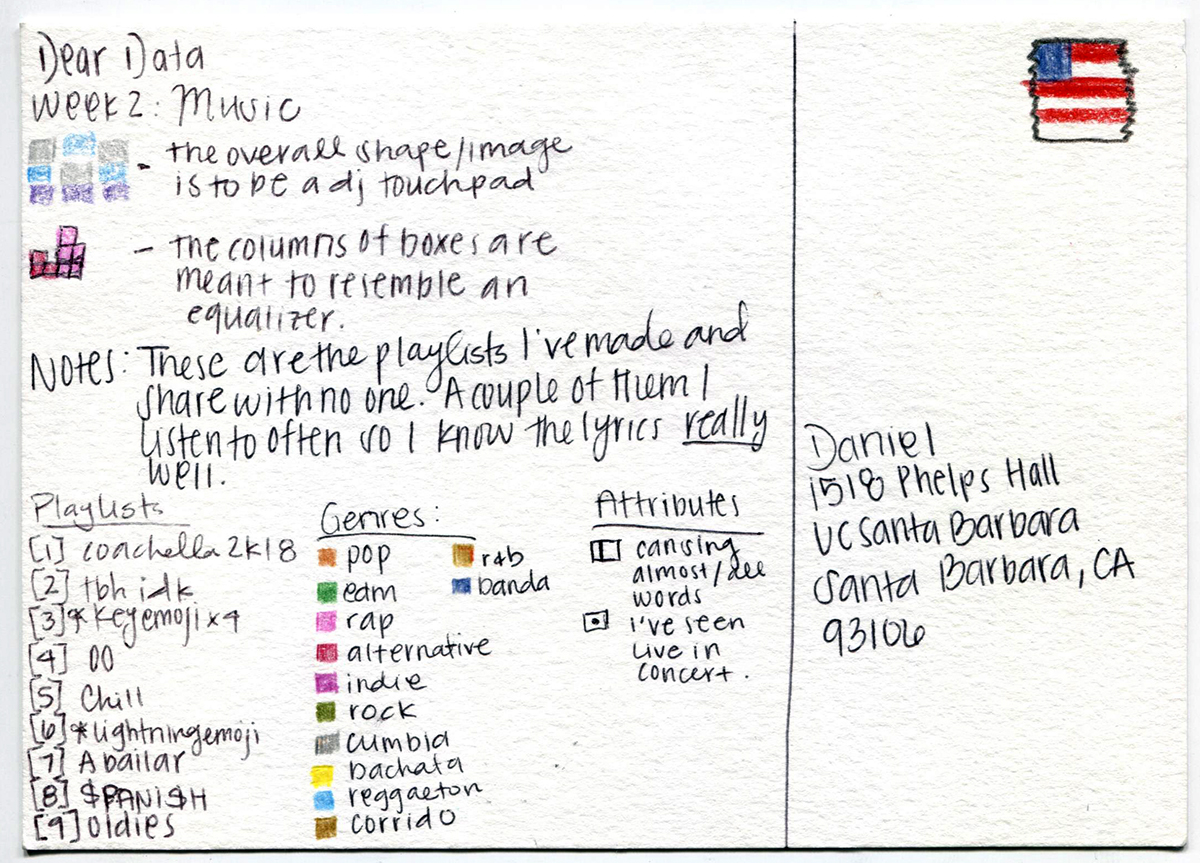 Dear Data
Week 2: Music
- the overall shape/image
is to be a dj touchpad
- the columns of boxes are
meant to resemble an
equalizer.
Notes: These are the playlists I've made and
share with no one. A couple of them I
listen to often so I know the lyrics really
well.
Playlists
[1] coachella 2k18
[2] tbh idk
[3] *key emoji x4
[4] 00
[5] Chill
[6] *lightning emoji
[7] A bailar
[8] $PANI$H
[9] oldies
Genres:
pop
edm
rap
alternative
indie
rock
cumbia
bachata
reggaeton
corrido
r&b
banda
Attributes
can sing
almost/all
words
i've seen
live in
concert.
Daniel
1518 Phelps Hall
UC Santa Barbara
Santa Barbara, CA
93106